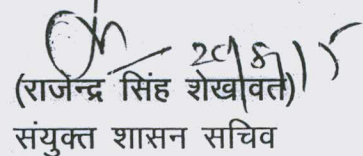 (राजेन्द्र सिंह शेखावत)
संयुक्त शासन सचिव